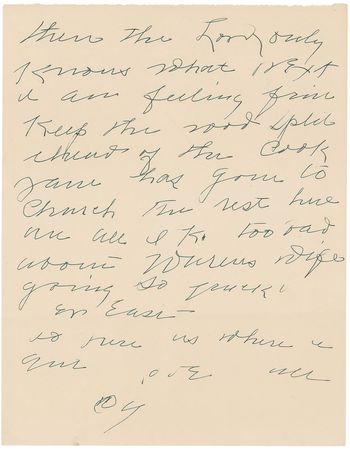 then the Lord only
Knows what next
I am feeling fine
Keep the wood split
ahead of the Cook
Jane has gone to
Church The rest here
are all O.K. too bad
about Wife
going so quick!
on East
us where
love all